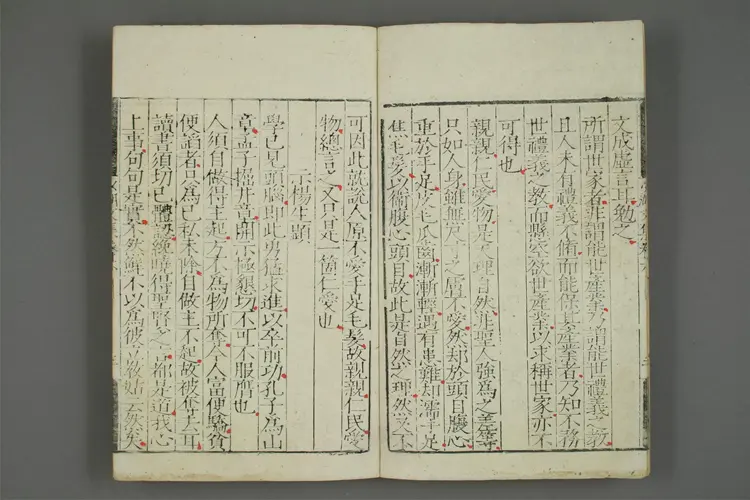 文成虛言耳勉之
所謂世家者非謂能世產業乃謂能世禮義之教
且人未有禮義不脩而能保其產業者乃知不務
世禮義之教而懸空欲世產業以求稱世家亦不
可得也
親親仁民愛物是天理自然非聖人強為之差等
只如人身雖無尺寸之膚不愛然却於頭目腹心
重於手足皮毛爪齒漸漸輕遇有患難却濡手足
焦毛髮以衛腹心頭目故此是自然之理然又不
可因此就說人原不愛手足毛髮故親親仁民愛
物總言之又只是一箇仁愛也
示楊生題
學已見頭腦即此勇猛求進以卒前功孔子為山
章孟子掘井章開示極懇切不可不服膺也
人須自做得主起方不為物所奪今人富便驕貧
便諂者只為己私未除自做主不起故被隼去耳
讀書須切己體認得聖賢之言都是道我心
上事句句是實不然縱不以為彼立教姑云然矣